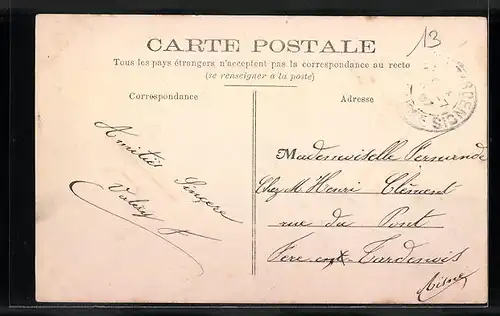 13
CARTE POSTALE
Tous les pays étrangers n'acceptent pas la correspondance au recto
(se renseigner à la poste)
Correspondance
Adresse
Amitiés Sincère
Mademoiselle Fernande
Chez M. Henri Clément
rue du Pont
Fère en Tardenois
Aisne